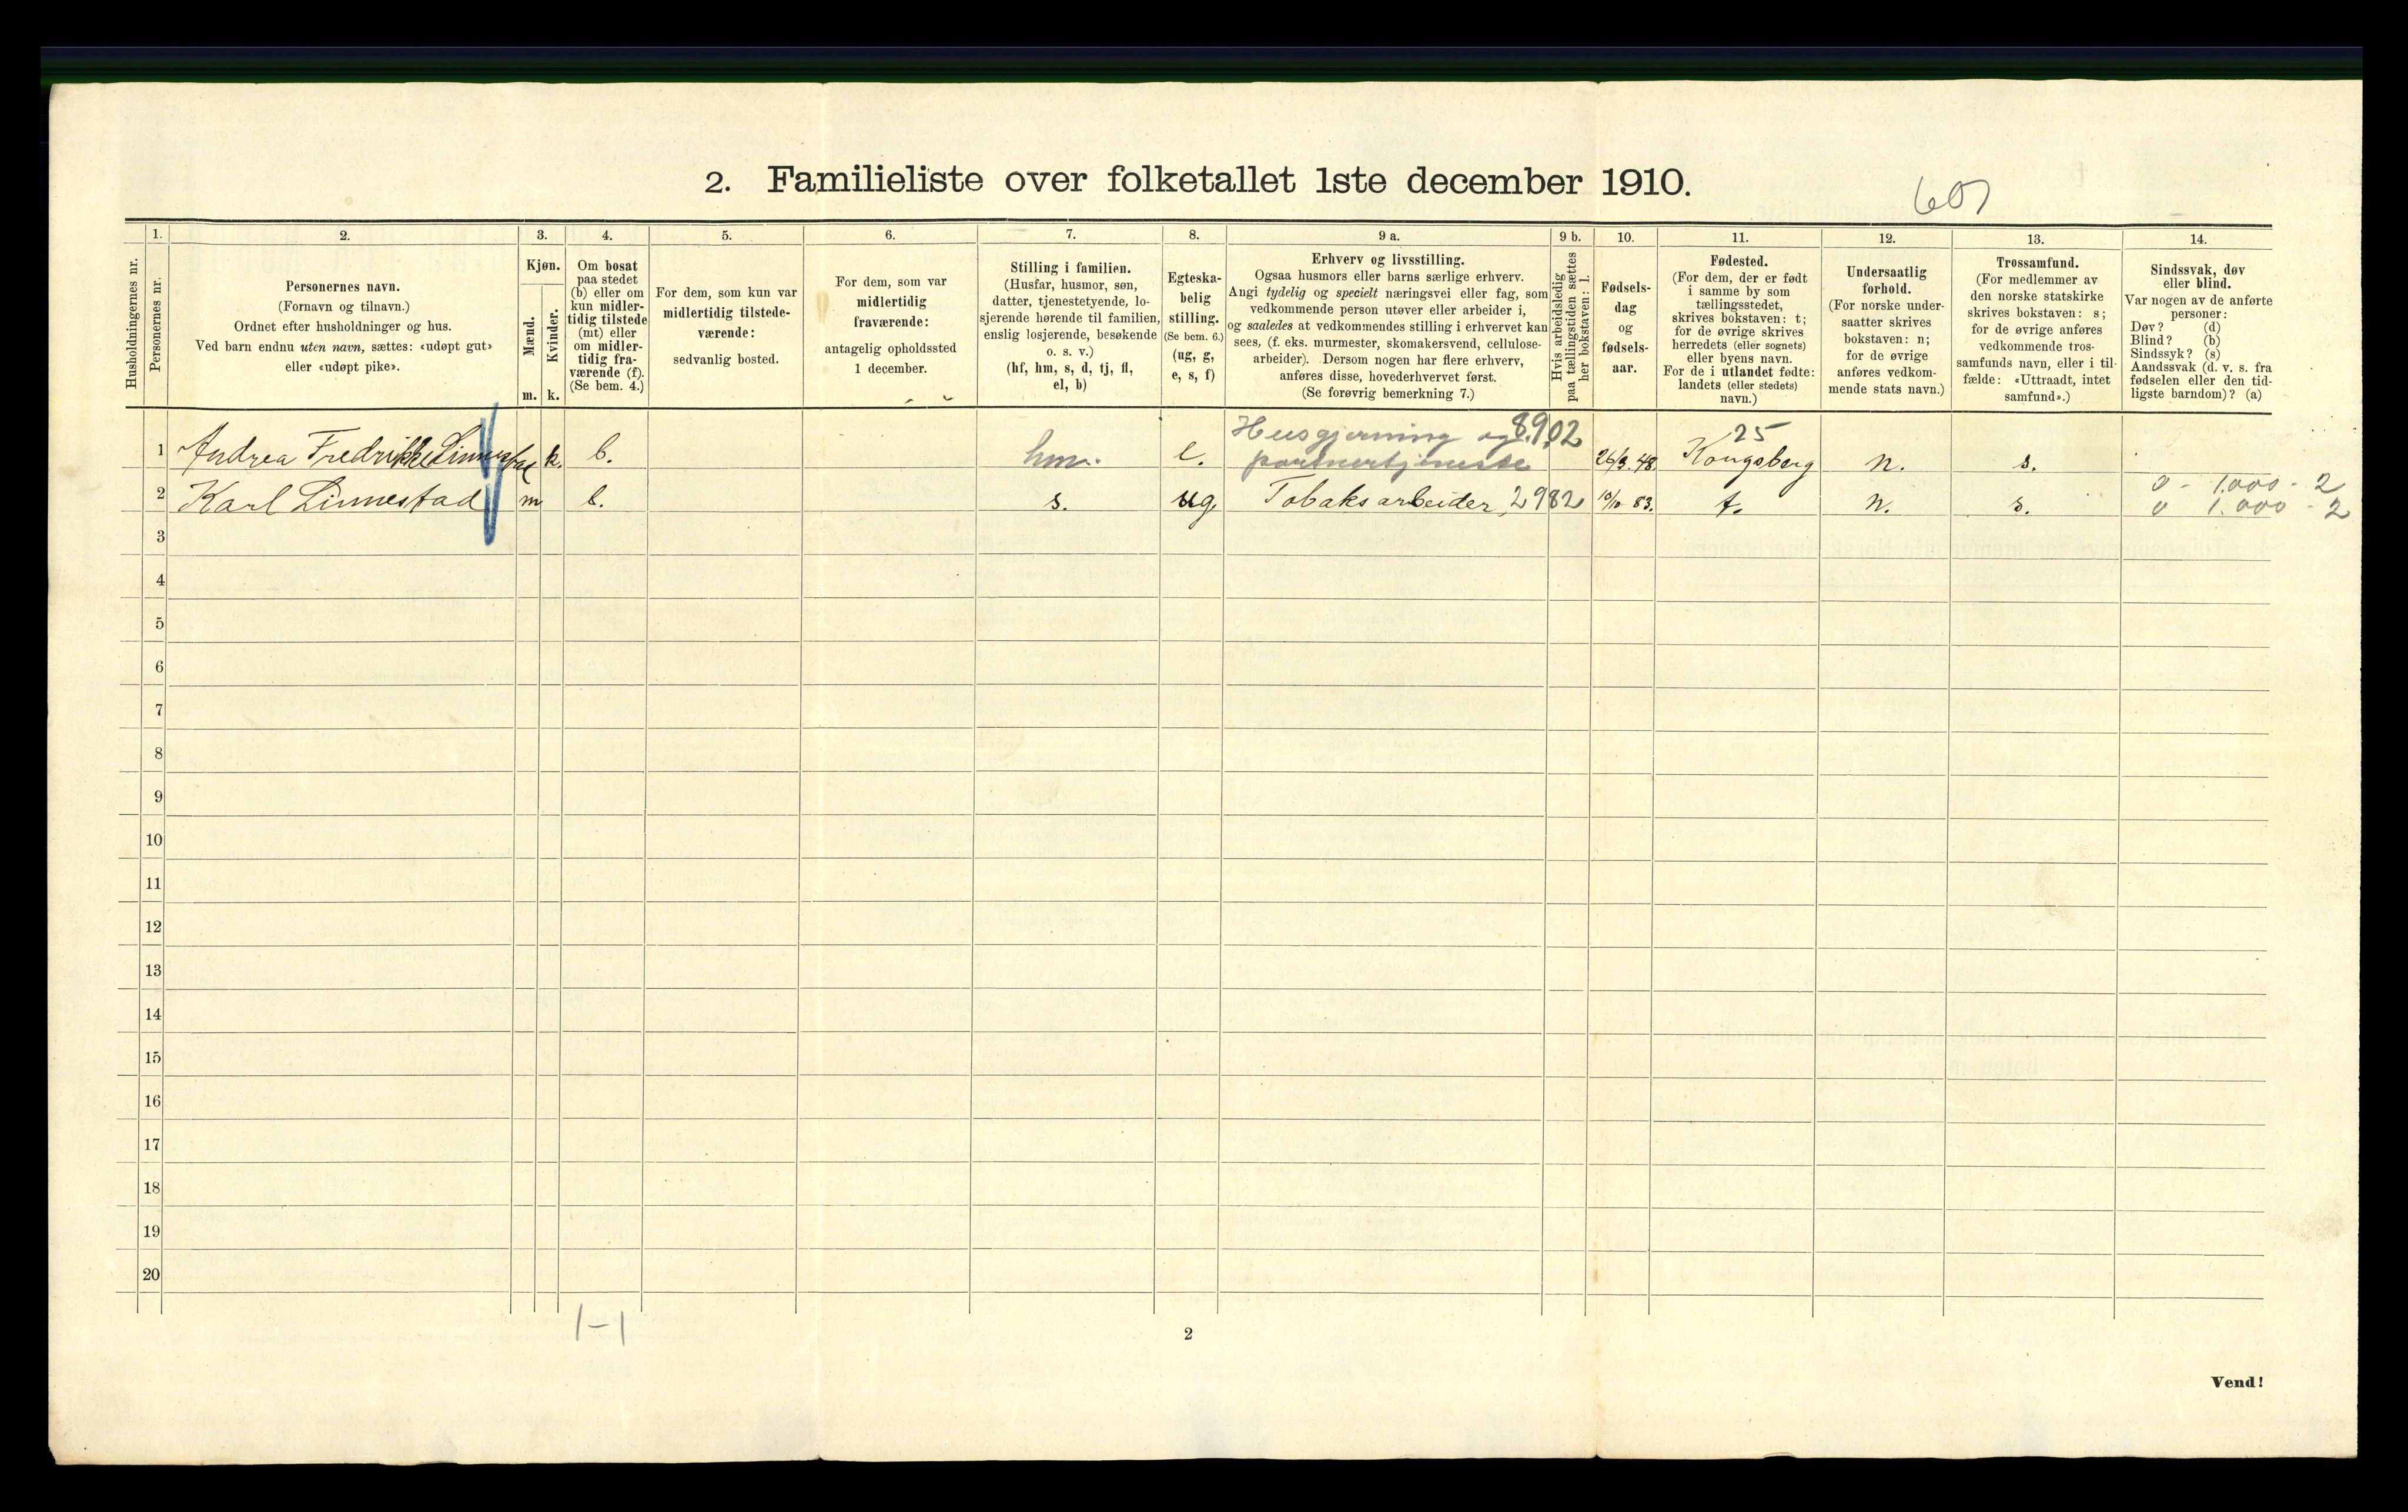 2. Familieliste over folketallet 1ste december 1910.
607
Husholdningernes nr.
1.
Personernes nr.
2.
Personernes navn.
(Fornavn og tilnavn.)
Ordnet efter husholdninger og hus.
Ved barn endnu uten navn, sættes: «udøpt gut»
eller «udøpt pike».
3.
Kjøn.
Mænd.
m.
Kvinder.
k.
4.
Om bosat
paa stedet
(b) eller om
kun midler-
tidig tilstede
(mt) eller
om midler-
tidig fra-
værende (f).
(Se bem. 4.)
5.
For dem, som kun var
midlertidig tilstede-
værende:
sedvanlig bosted.
6.
For dem, som var
midlertidig
fraværende:
antagelig opholdssted
1 december.
7.
Stilling i familien.
(Husfar, husmor, søn,
datter, tjenestetyende, lo-
sjerende hørende til familien,
enslig losjerende, besøkende
o. s. v.)
(hf, hm, s, d, tj, fl,
el, b)
8.
Egteska-
belig
stilling.
(Se bem. 6.)
(ug, g,
e, s, f)
9 a.
Erhverv og livsstilling.
Ogsaa husmors eller barns særlige erhverv.
Angi tydelig og specielt næringsvei eller fag, som
vedkommende person utøver eller arbeider i,
og saaledes at vedkommendes stilling i erhvervet kan
sees, (f. eks. murmester, skomakersvend, cellulose-
arbeider). Dersom nogen har flere erhverv,
anføres disse, hovederhvervet først.
(Se forøvrig bemerkning 7.)
9 b.
Hvis arbeidsledig
paa tællingstiden sættes
her bokstaven: l.
10.
Fødsels-
dag
og
fødsels-
aar.
11.
Fødested.
(For dem, der er født
i samme by som
tællingsstedet,
skrives bokstaven: t;
for de øvrige skrives
herredets (eller sognets)
eller byens navn.
For de i utlandet fødte:
landets (eller stedets)
navn.)
12.
Undersaatlig
forhold.
(For norske under-
saatter skrives
bokstaven: n;
for de øvrige
anføres vedkom-
mende stats navn.)
13.
Trossamfund.
(For medlemmer av
den norske statskirke
skrives bokstaven: s;
for de øvrige anføres
vedkommende tros-
samfunds navn, eller i til-
fælde: «Uttraadt, intet
samfund».)
14.
Sindssvak, døv
eller blind.
Var nogen av de anførte
personer:
Døv? (d)
Blind? (b)
Sindssyk? (s)
Aandssvak (d. v. s. fra
fødselen eller den tid-
ligste barndom)? (a)
1 Andrea Fredrikke Linnestad k. b. hm. e. Husgjerning og 8902
portnertjeneste 26/3 48. 25 Kongsberg n. s.
0 - 1.000 - 2
2 Karl Linnestad m b. s. ug. Tobaksarbeider 2982 10/10 83. t. n. s. 0 1.000 - 2
3
4
5
6
7
8
9
10
11
12
13
14
15
16
17
18
19
20
1-1
2
Vend!